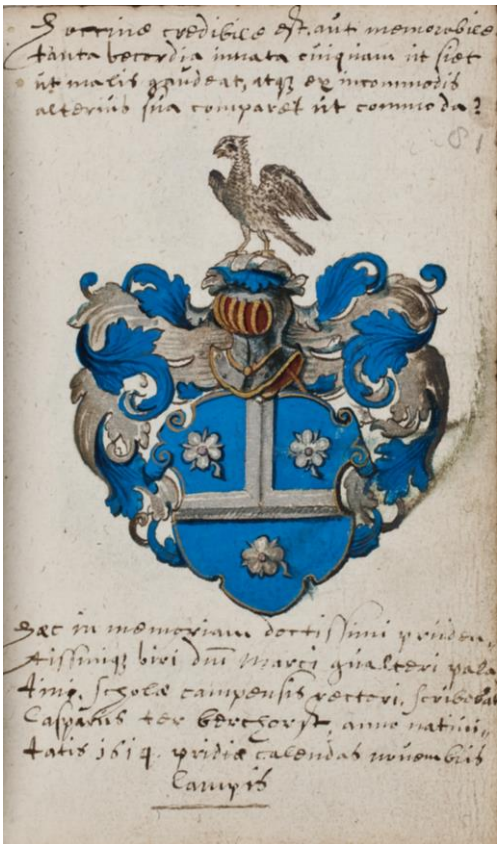 Hoccine credibile est, aut memorabile
tanta vecordia innata cuiquam ut siet
ut malis gaudeat, atq; ex incommodis
alterius sua comparet ut commoda?
81
Hæc in memoriam doctissimi pruden-
tissimiq; viri dni Marci gualteri pala
tino, scholæ campensis rectori, scribebat
Casparus ter berchorst, anno nativi-
tatis 1614. pridiæ calendas novembris
Campis